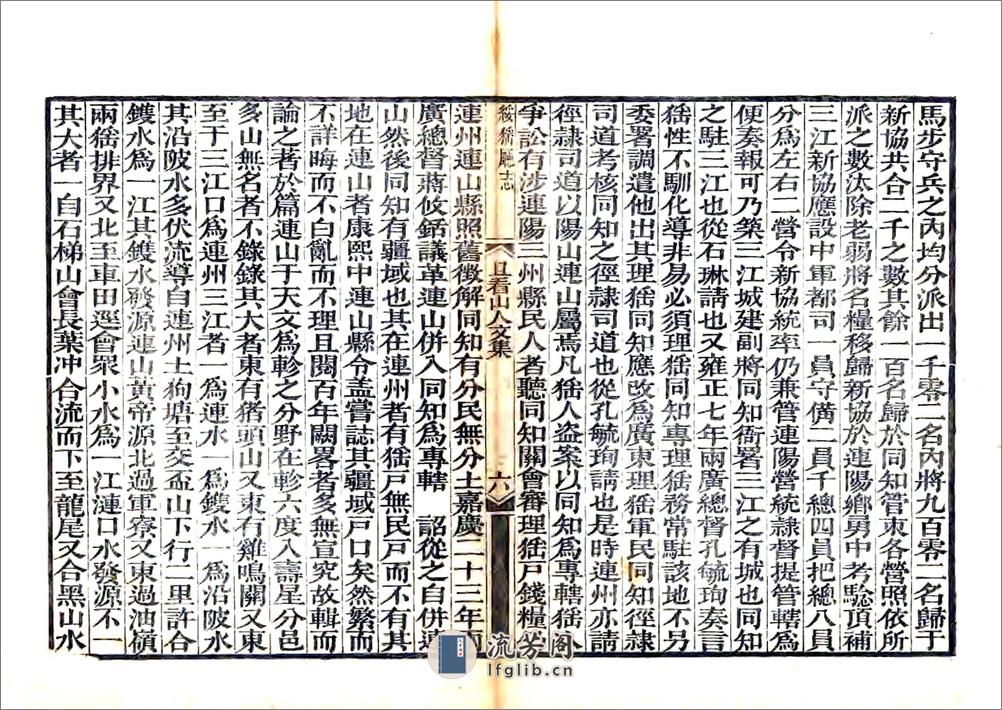 馬步守兵之內均分派出一千零二名內將九百零二名歸于
新協共合二千之數其餘一百名歸於同知管束各營照依所
派之數汰除老弱將名糧移歸新協於連陽鄉勇中考驗頂補
三江新協應設中軍都司一員守備二員千總四員把總八員
分為左右二營令新協統率仍兼管連陽營統隸督提管轄為
便奏報可乃築三江城建副將同知衙署三江之有城也同知
之駐三江也從石琳請也又雍正七年兩廣總督孔毓珣奏言
猺性不馴化導非易必須理猺同知專理猺務常駐該地不另
委署調遣他出其理猺同知應改為廣東理猺軍民同知徑隸
司道考核同知之徑隸司道也從孔毓珣請也是時連州亦請
徑隸司道以陽山連山屬焉凡猺人盜案以同知為專轄猺人
爭訟有涉連陽三州縣民人者聽同知關會審理猺戶錢糧
綏猺廳志
且看山人文集
六
連州連山縣照舊徵解同知有分民無分土嘉慶二十二年兩
廣總督蔣攸銛議革連山併入同知為專轄 詔從之自併連
山然後同知有疆域也其在連州者有猺戶無民戶而不有其
地在連山者康熙中連山縣令盖嘗誌其疆域戶口矣然繁而
不詳晦而不白亂而不理且閱百年闕畧者多無宣究故輯而
論之著於篇連山于天文為軫之分野在軫六度入壽星分邑
多山無名者不錄錄其大者東有猶頭山又東有雞鳴關又東
至于三江口為連州三江者一為連水一為鑊水一為沿陂水
其沿陂水多伏流導自連州土狗塘至交盃山下行二里許合
鑊水為一江其鑊水發源連山黃帝源北過軍寮又東過油嶺
兩猺排界又北至車田逕會眾小水為一江漣口水發源不一
其大者一自石梯山會長葉冲合流而下至龍尾又合黑山水
流芳阁
lfglib.cn